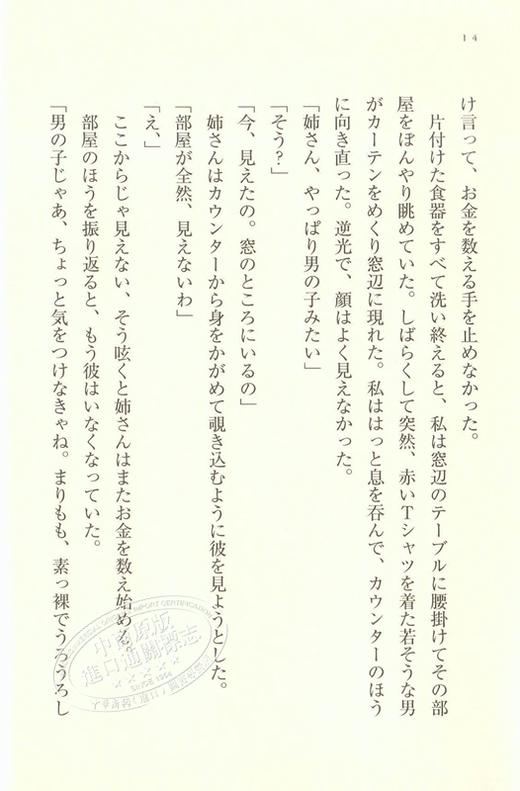 14
け言って、お金を数える手を止めなかった。
片付けた食器をすべて洗い終えると、私は窓辺のテーブルに腰掛けてその部
屋をぼんやり眺めていた。しばらくして突然、赤いTシャツを着た若そうな男
がカーテンをめくり窓辺に現れた。私ははっと息を呑んで、カウンターのほう
に向き直った。逆光で、顔はよく見えなかった。
「姉さん、やっぱり男の子みたい」
「そう?」
「今、見えたの。窓のところにいるの」
姉さんはカウンターから身をかがめて覗き込むように彼を見ようとした。
「部屋が全然、見えないわ」
「え、」
ここからじゃ見えない、そう呟くと姉さんはまたお金を数え始める。
部屋のほうを振り返ると、もう彼はいなくなっていた。
「男の子じゃあ、ちょっと気をつけなきゃね。まりもも、素っ裸でうろうろし
中商原版
進口通關標志